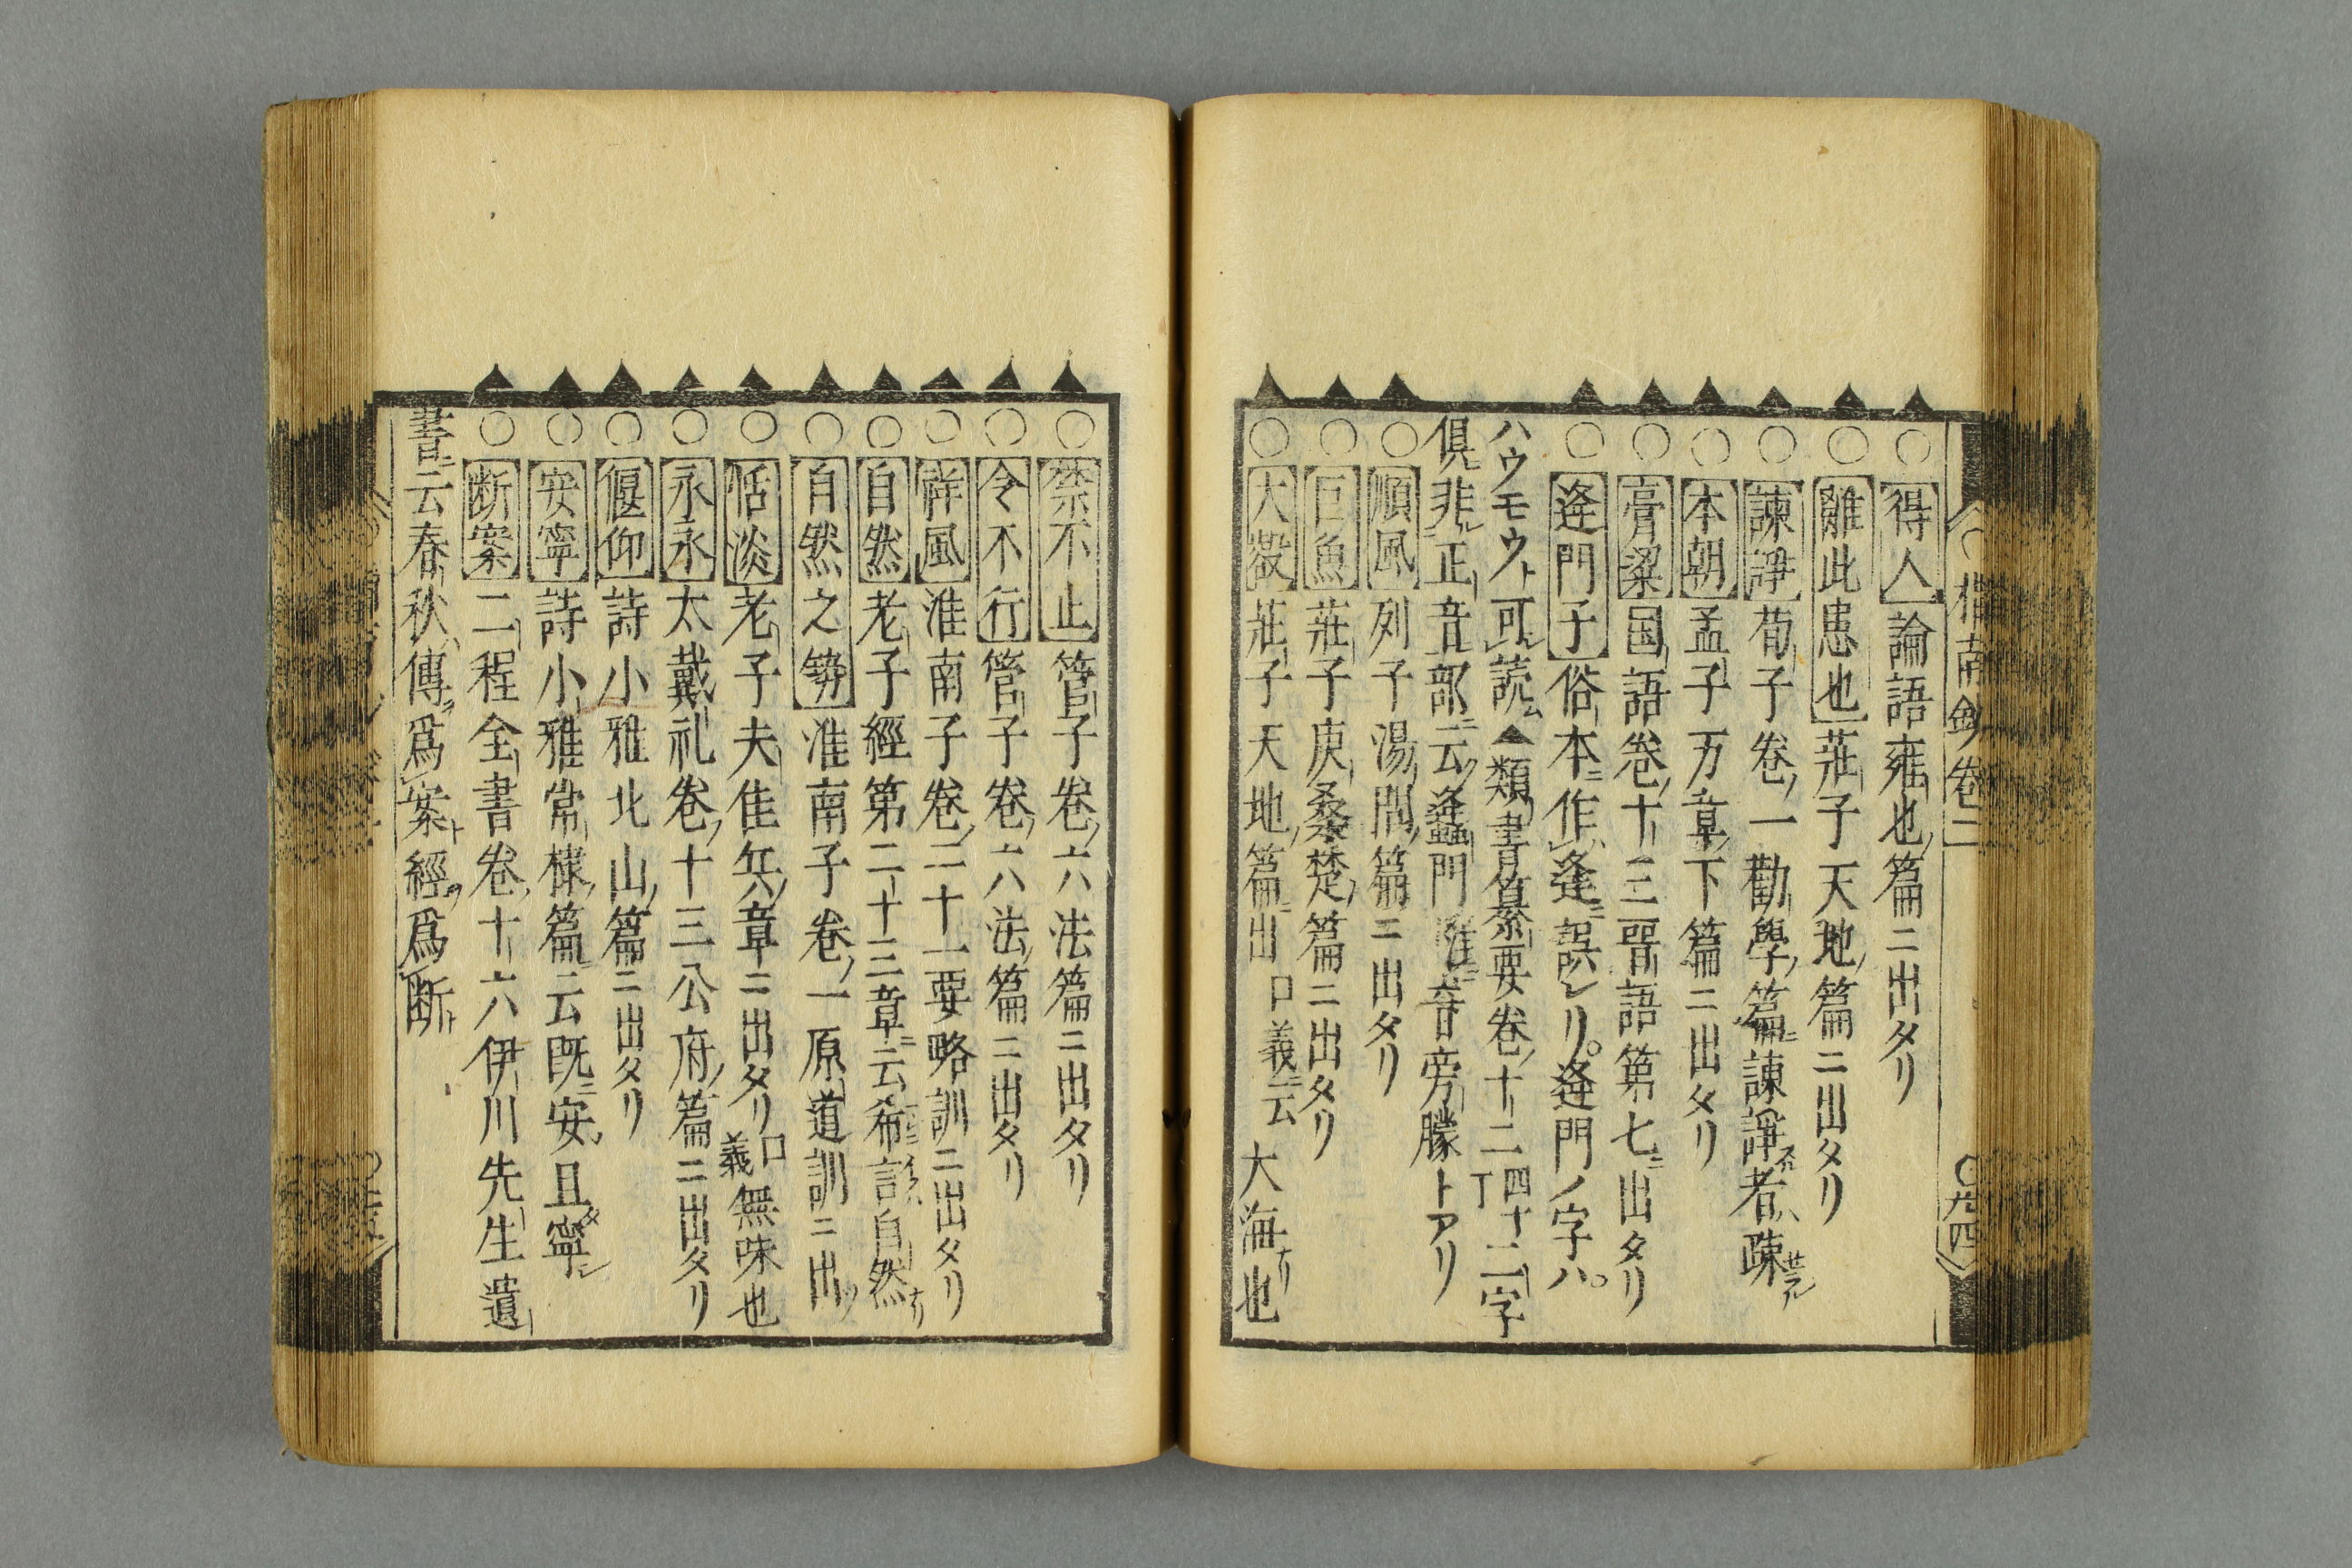 ○得人論語雍也篇ニ出タリ
○離此患也莊子天地篇ニ出タリ
○諫諍荀子卷一勸學篇諫諍者疎
○本朝孟子万章下篇ニ出タリ
○膏粱国語卷十三晋語第七ニ出タリ
○逄門子俗本ニ作逢ニ誤レリ。逄門ノ字ハ。
ハウモウト可読▲類書纂要卷十二四十二丁二字
倶非正音部ニ云逢門註音旁朦トアリ
○順風列子湯問篇ニ出タリ
○巨魚莊子庚桑楚篇ニ出タリ
○大壑莊子天地篇ニ出口義ニ云大海也
○禁不止管子卷六法篇ニ出タリ
○令不行管子卷六法篇ニ出タリ
○祥風淮南子卷二十一要略訓ニ出タリ
○自然老子經第二十三章ニ云希言自然
○自然之勢淮南子卷一原道訓ニ出ツ
○恬淡老子夫佳兵章ニ出タリ口義無味也
○永永大戴礼卷十三公府篇ニ出タリ
○偃仰詩小雅北山篇ニ出タリ
○安寧詩小雅常棣篇ニ云既安且寧
○断案二程全書卷十六伊川先生遺
書ニ云春秋傳爲案經爲断
指南鈔卷二
○九四